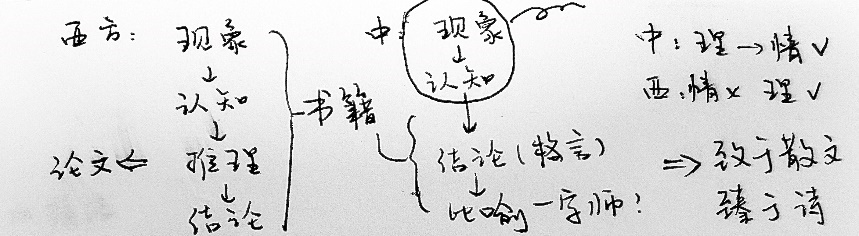 西方: 现象
↓
认知
↓
论文⇐ 推理
↓
结论
书籍
中: 现象
↓
认知
↓
结论(格言)
↓
比喻一字师?
中: 理→情√
西:情× 理√
⇒ 致于散文
臻于诗